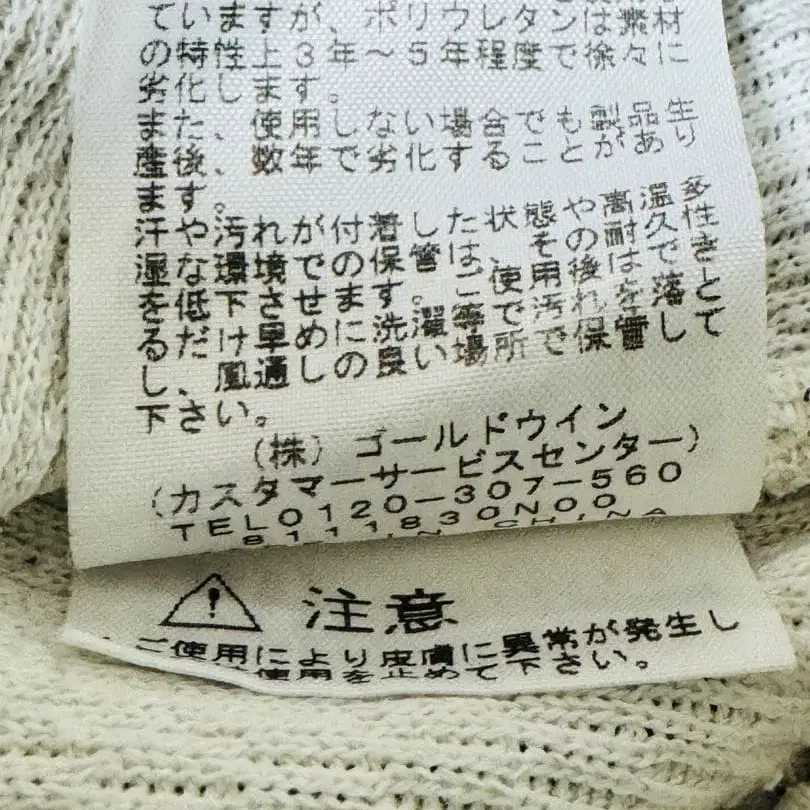 ていますが、ポリウレタンは素材
の特性上3年〜5年程度で徐々に
劣化します。
また、使用しない場合でも製品生
産後、数年で劣化することがあり
ます。
汗や汚れが付着した状態や高温多
湿な環境での保管は、その耐久性
を低下させます。ご使用後はでき
るだけ早めに洗濯等で汚れを落と
し、風通しの良い場所で保管して
下さい。
(株)ゴールドウイン
(カスタマーサービスセンター)
TEL0120-307-560
8111830N00
IN CHINA
注意
ご使用により皮膚に異常が発生し
使用を止めて下さい。